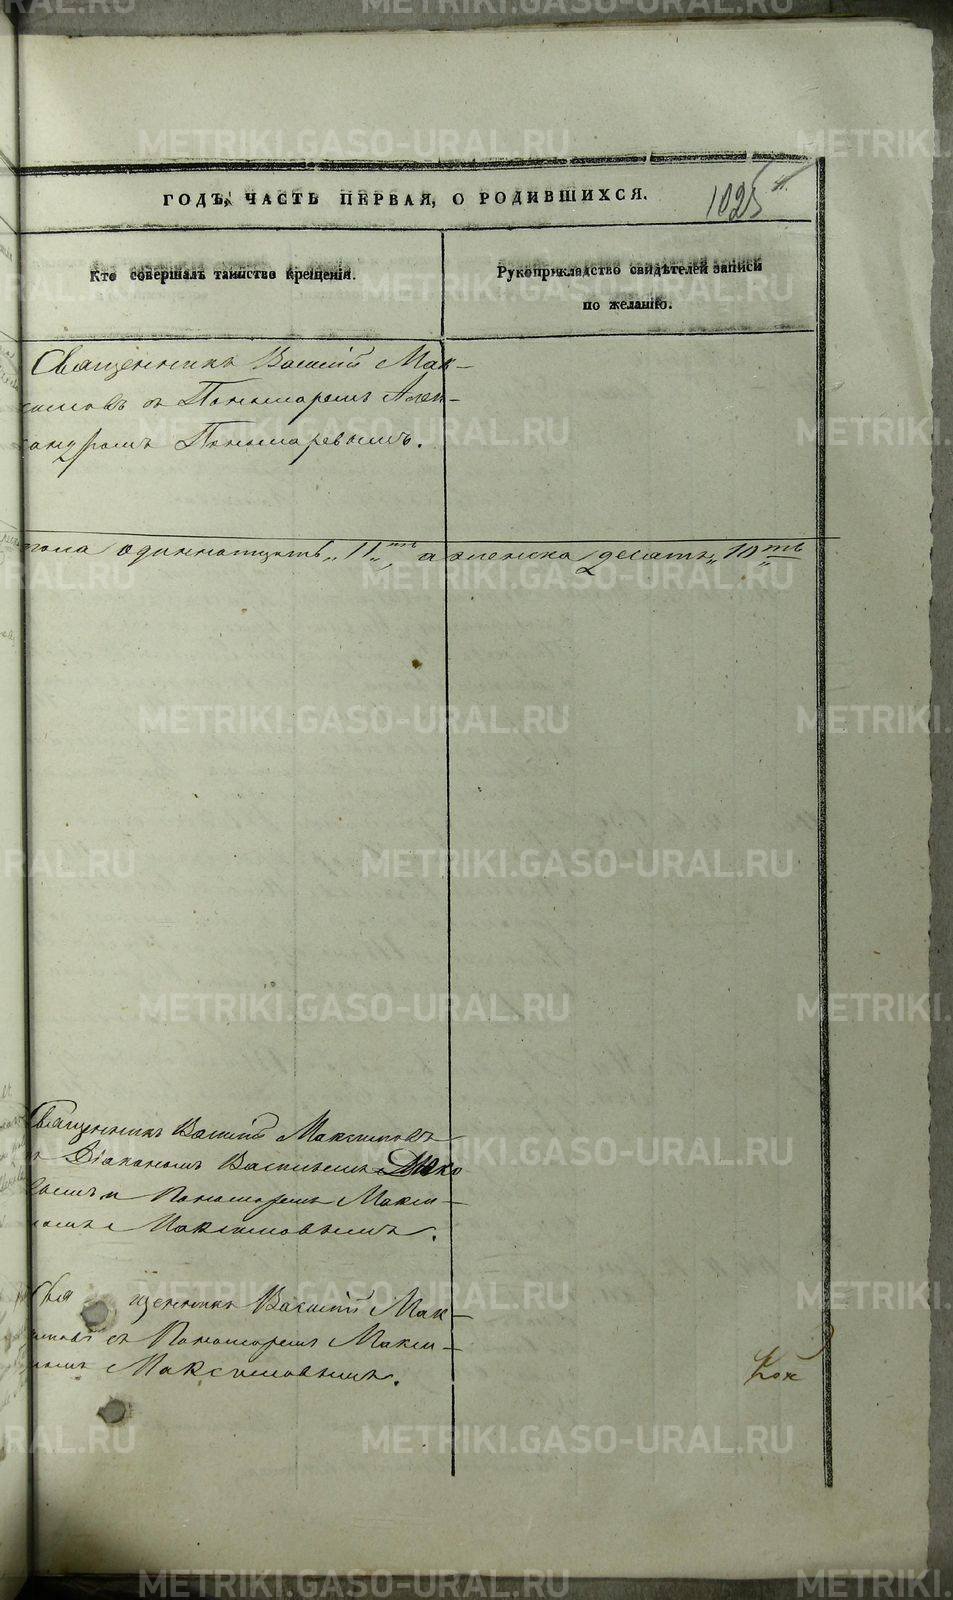 METRIKI.GASO-URAL.RU
ГОДЪ, ЧАСТЬ ПЕРВАЯ, О РОДИВШИХСЯ.
1025
Кто совершалъ таинство крещенія.
Рукоприкладство свидѣтелей записи
по желанію.
Священникъ Василій Мак-
симовъ съ Пономаремъ Алек-
сандромъ Пономаревымъ.
пола одиннатцать „11„ть, а женска десять „10„ть
Священникъ Василій Максимовъ
съ Діакономъ Василіемъ
вымъ и Пономаремъ Макси-
момъ Максимовымъ.
Священникъ Василій Мак-
симовъ съ Пономаремъ Макси-
момъ Максимовымъ.